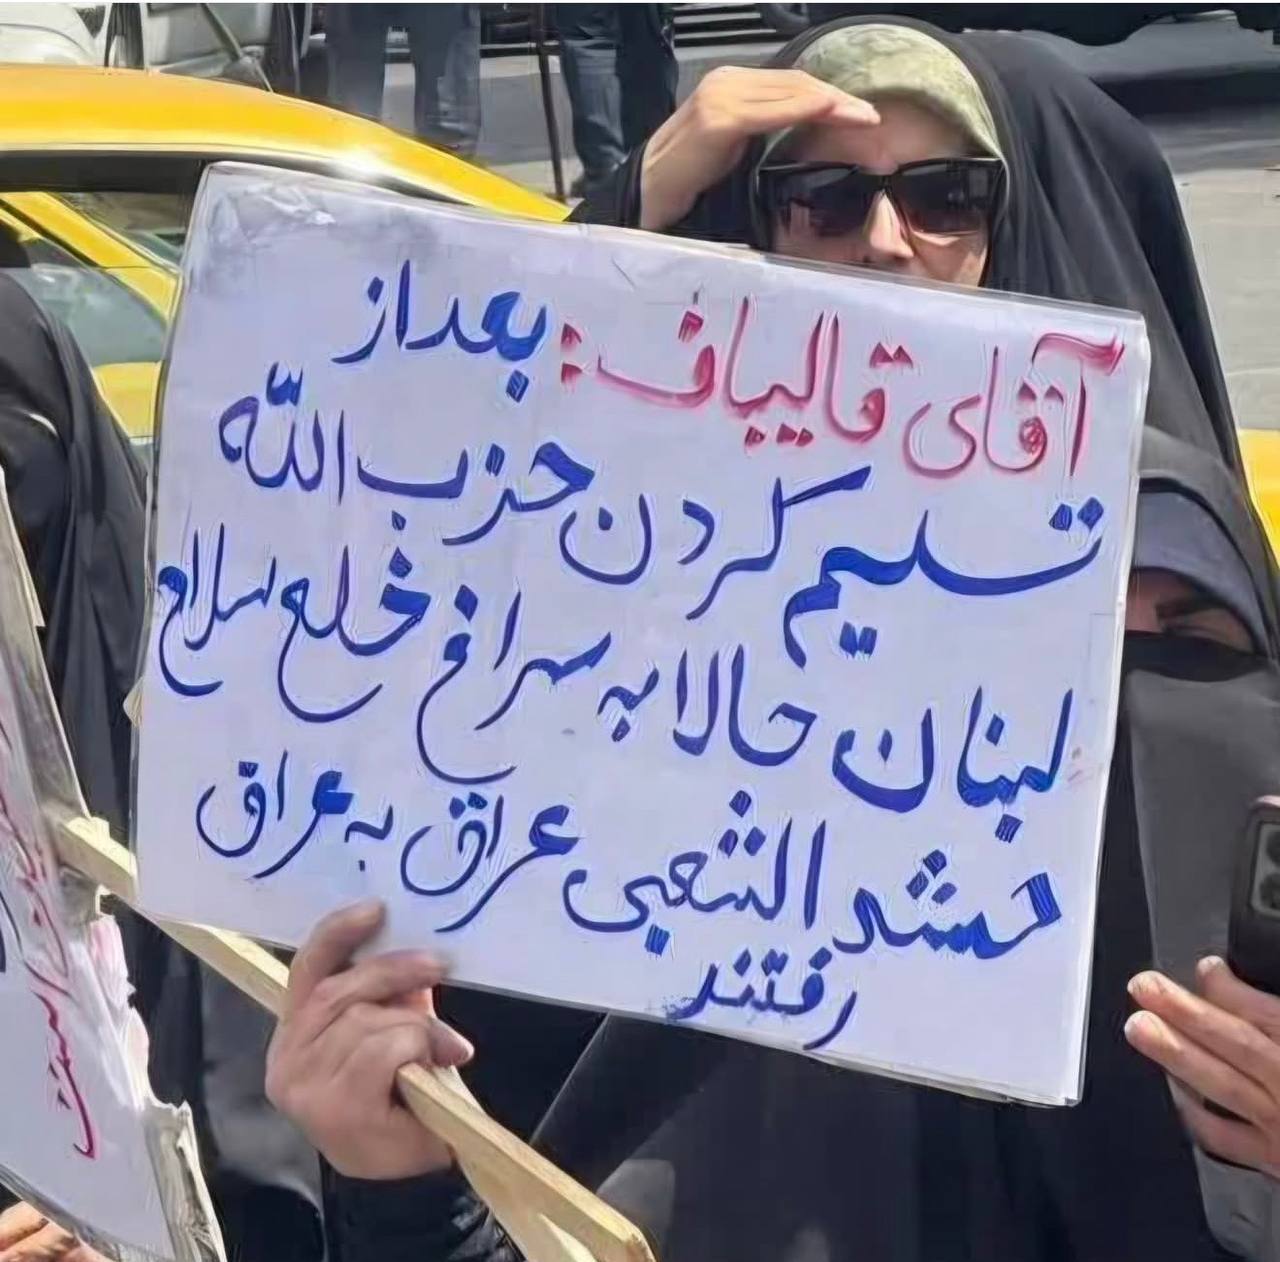 آقای قالیباف: بعد از
تسلیم کردن حزب الله
لبنان حالا به سراغ خلع سلاح
حشد الشعبی عراق به عراق
رفتند